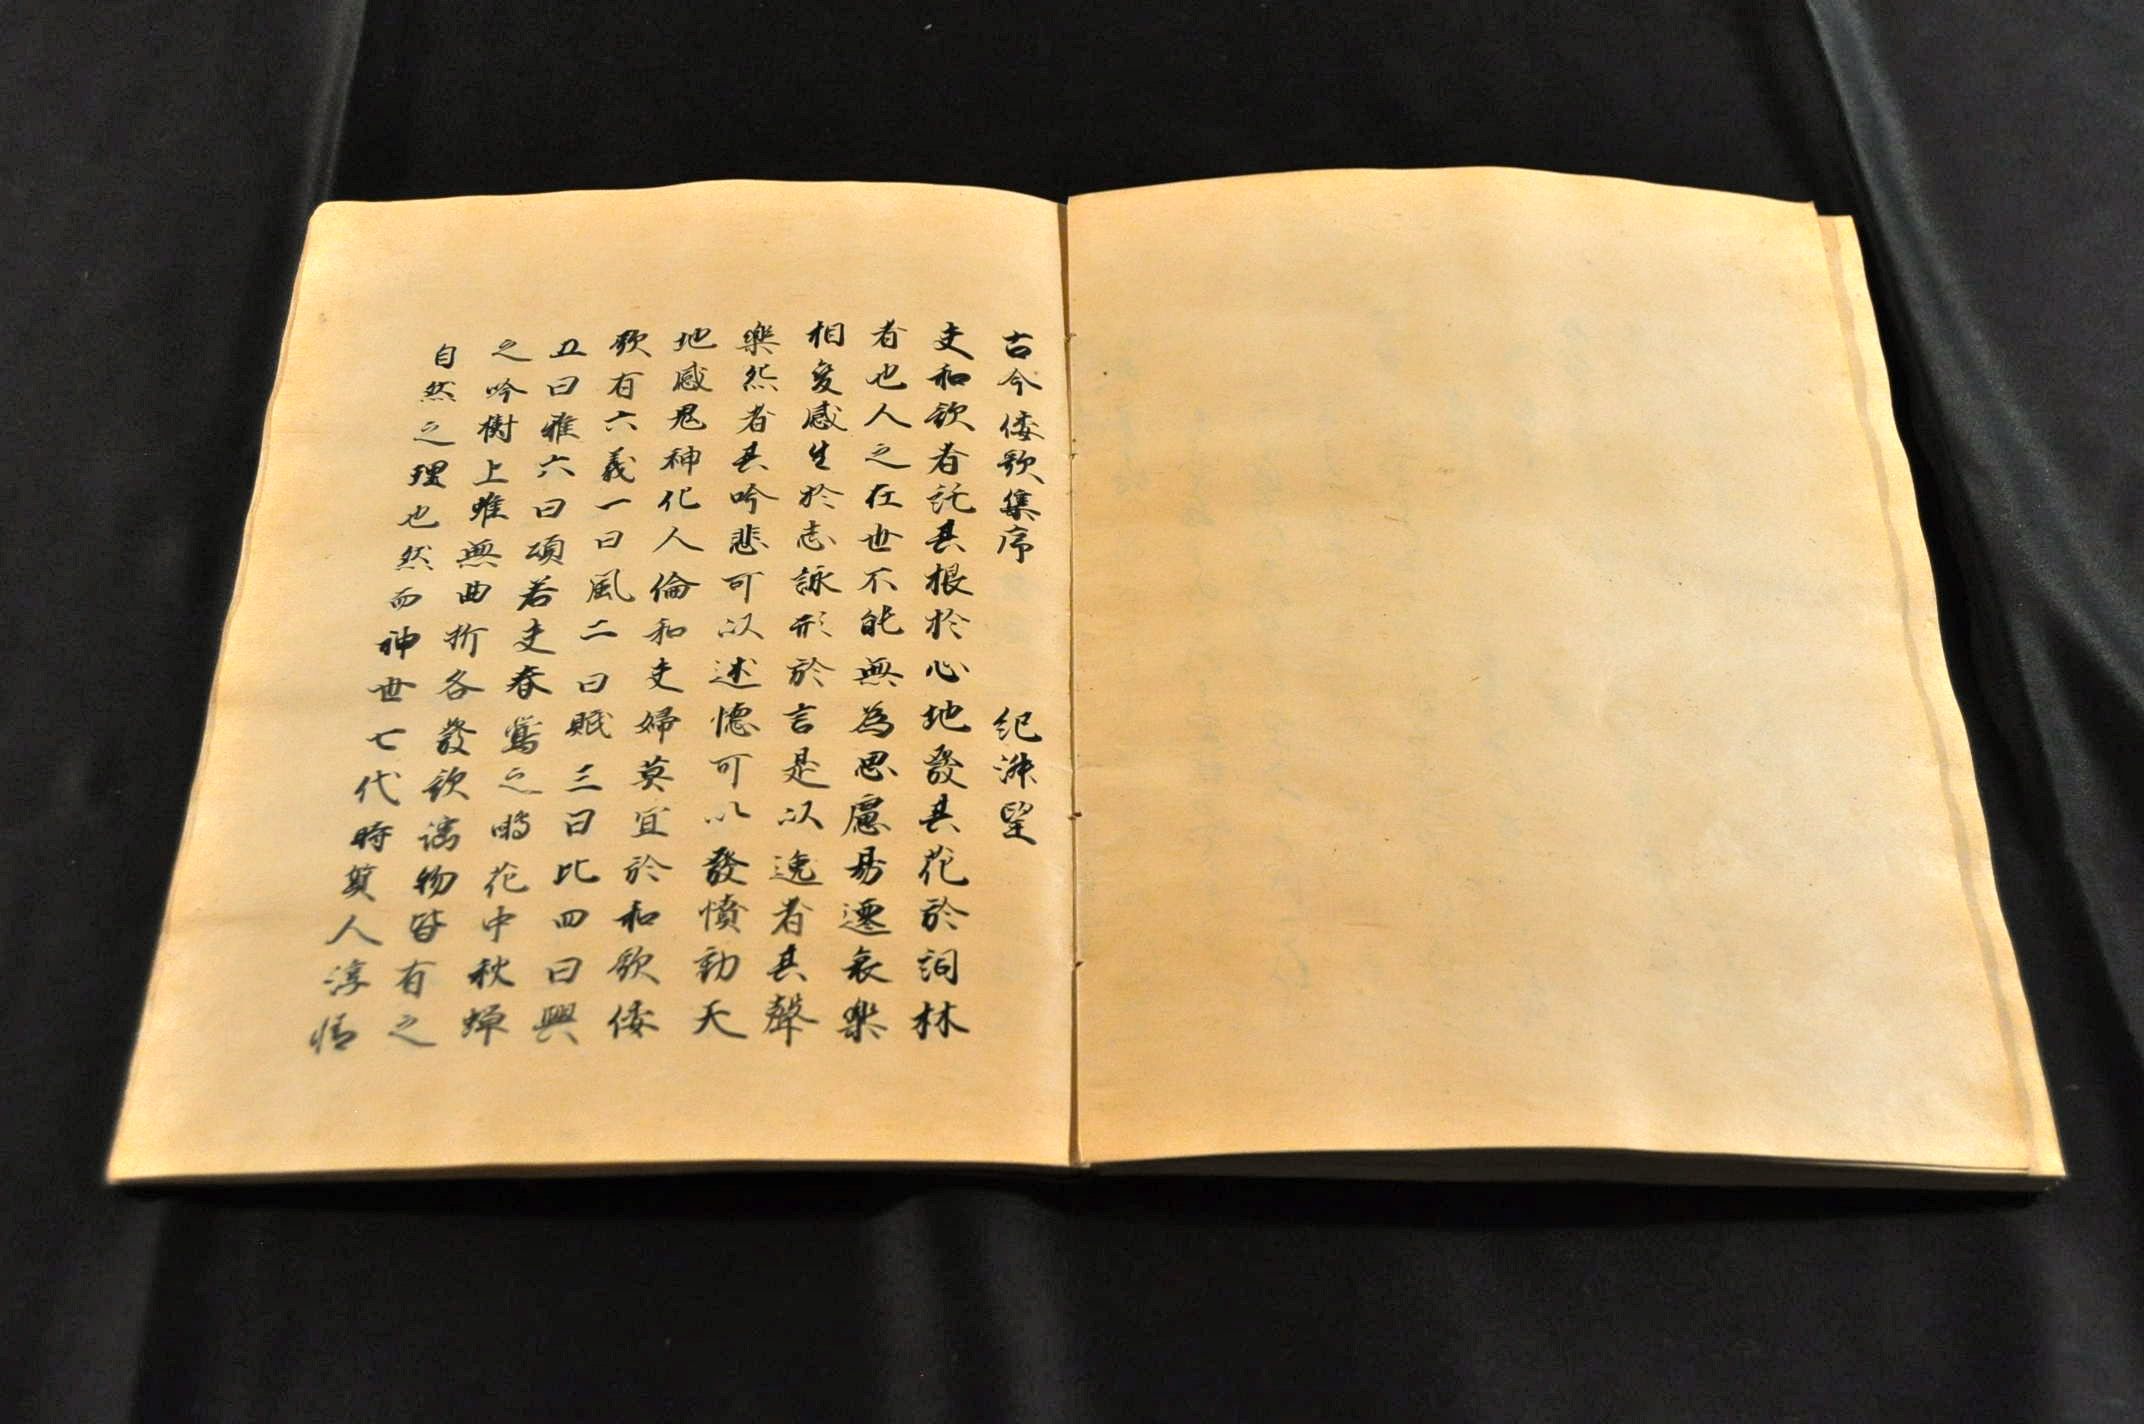 古今倭歌集序 紀淑望
夫和歌者託其根於心地發其花於詞林
者也人之在世不能無為思慮易遷哀樂
相變感生於志詠形於言是以逸者其聲
樂怨者其吟悲可以述懐可以發憤動天
地感鬼神化人倫和夫婦莫宜於和歌倭
歌有六義一曰風二曰賦三曰比四曰興
五曰雅六曰頌若夫春鶯之囀花中秋蟬
之吟樹上雖無曲折各發歌謠物皆有之
自然之理也然而神世七代時質人淳情